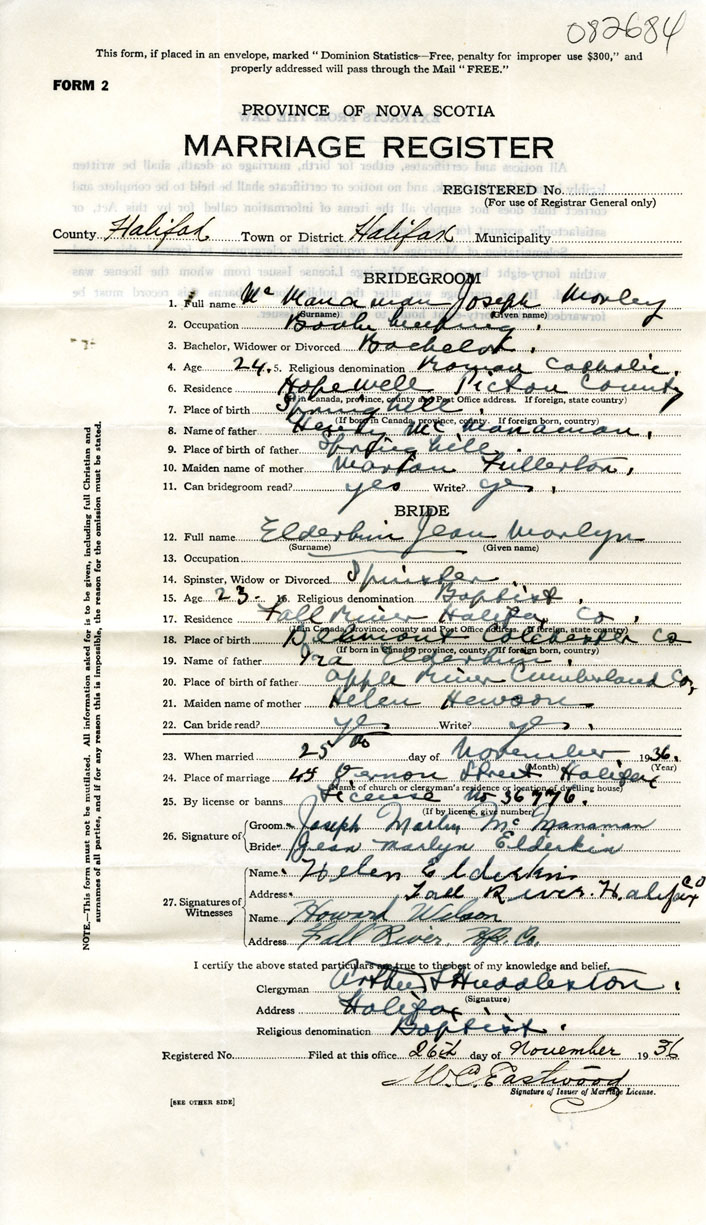 082684
This form, if placed in an envelope, marked "Dominion Statistics—Free, penalty for improper use $300," and
properly addressed will pass through the Mail "FREE."
FORM 2
PROVINCE OF NOVA SCOTIA
MARRIAGE REGISTER
REGISTERED No.
(For use of Registrar General only)
County Halifax Town or District Halifax Municipality
BRIDEGROOM
1. Full name McManaman Joseph Morley
(Surname) (Given name)
2. Occupation Book keeping.
3. Bachelor, Widower or Divorced Bachelor.
4. Age 24. 5. Religious denomination Roman Catholic.
6. Residence Hopewell Pictou County
(If in Canada, province, county and Post Office address. If foreign, state country)
7. Place of birth Springhill.
(If born in Canada, province, county. If foreign born, country)
8. Name of father McManaman.
9. Place of birth of father Spring hill.
10. Maiden name of mother Marion Fullerton,
11. Can bridegroom read? yes Write? yes.
BRIDE
12. Full name Elderkin Jean Marlyn
(Surname) (Given name)
13. Occupation
14. Spinster, Widow or Divorced Spinster.
15. Age 23- 16. Religious denomination Baptist.
17. Residence Fall River Halifax Co.
(If in Canada, province, county and Post Office address. If foreign, state country)
18. Place of birth Colchester Co
(If born in Canada, province, county. If foreign born, country)
19. Name of father Ira Elderkin.
20. Place of birth of father Apple River Cumberland Co,
21. Maiden name of mother Helen Hewson
22. Can bride read? yes Write? yes.
23. When married 25th day of November 1936.
(Month) (Year)
24. Place of marriage 45 Vernon Street Halifax
(Name of church or clergyman's residence or location of dwelling house)
25. By license or banns License No 36776.
(If by license, give number)
26. Signature of Groom Joseph Marley McManaman
Bride Jean Marlyn Elderkin
27. Signatures of Witnesses
Name Helen Elderkin
Address Fall River. Halifax Co
Name Howard Wilson
Address Fall River, Hfx Co.
I certify the above stated particulars are true to the best of my knowledge and belief.
Clergyman Arthur S Huddleston.
(Signature)
Address Halifax
Religious denomination Baptist.
Registered No. Filed at this office 26th day of November 1936
W.C. Eastwood
Signature of Issuer of Marriage License.
[SEE OTHER SIDE]
NOTE.—This form must not be mutilated. All information asked for is to be given, including full Christian and
surnames of all parties, and if for any reason this is impossible, the reason for the omission must be stated.